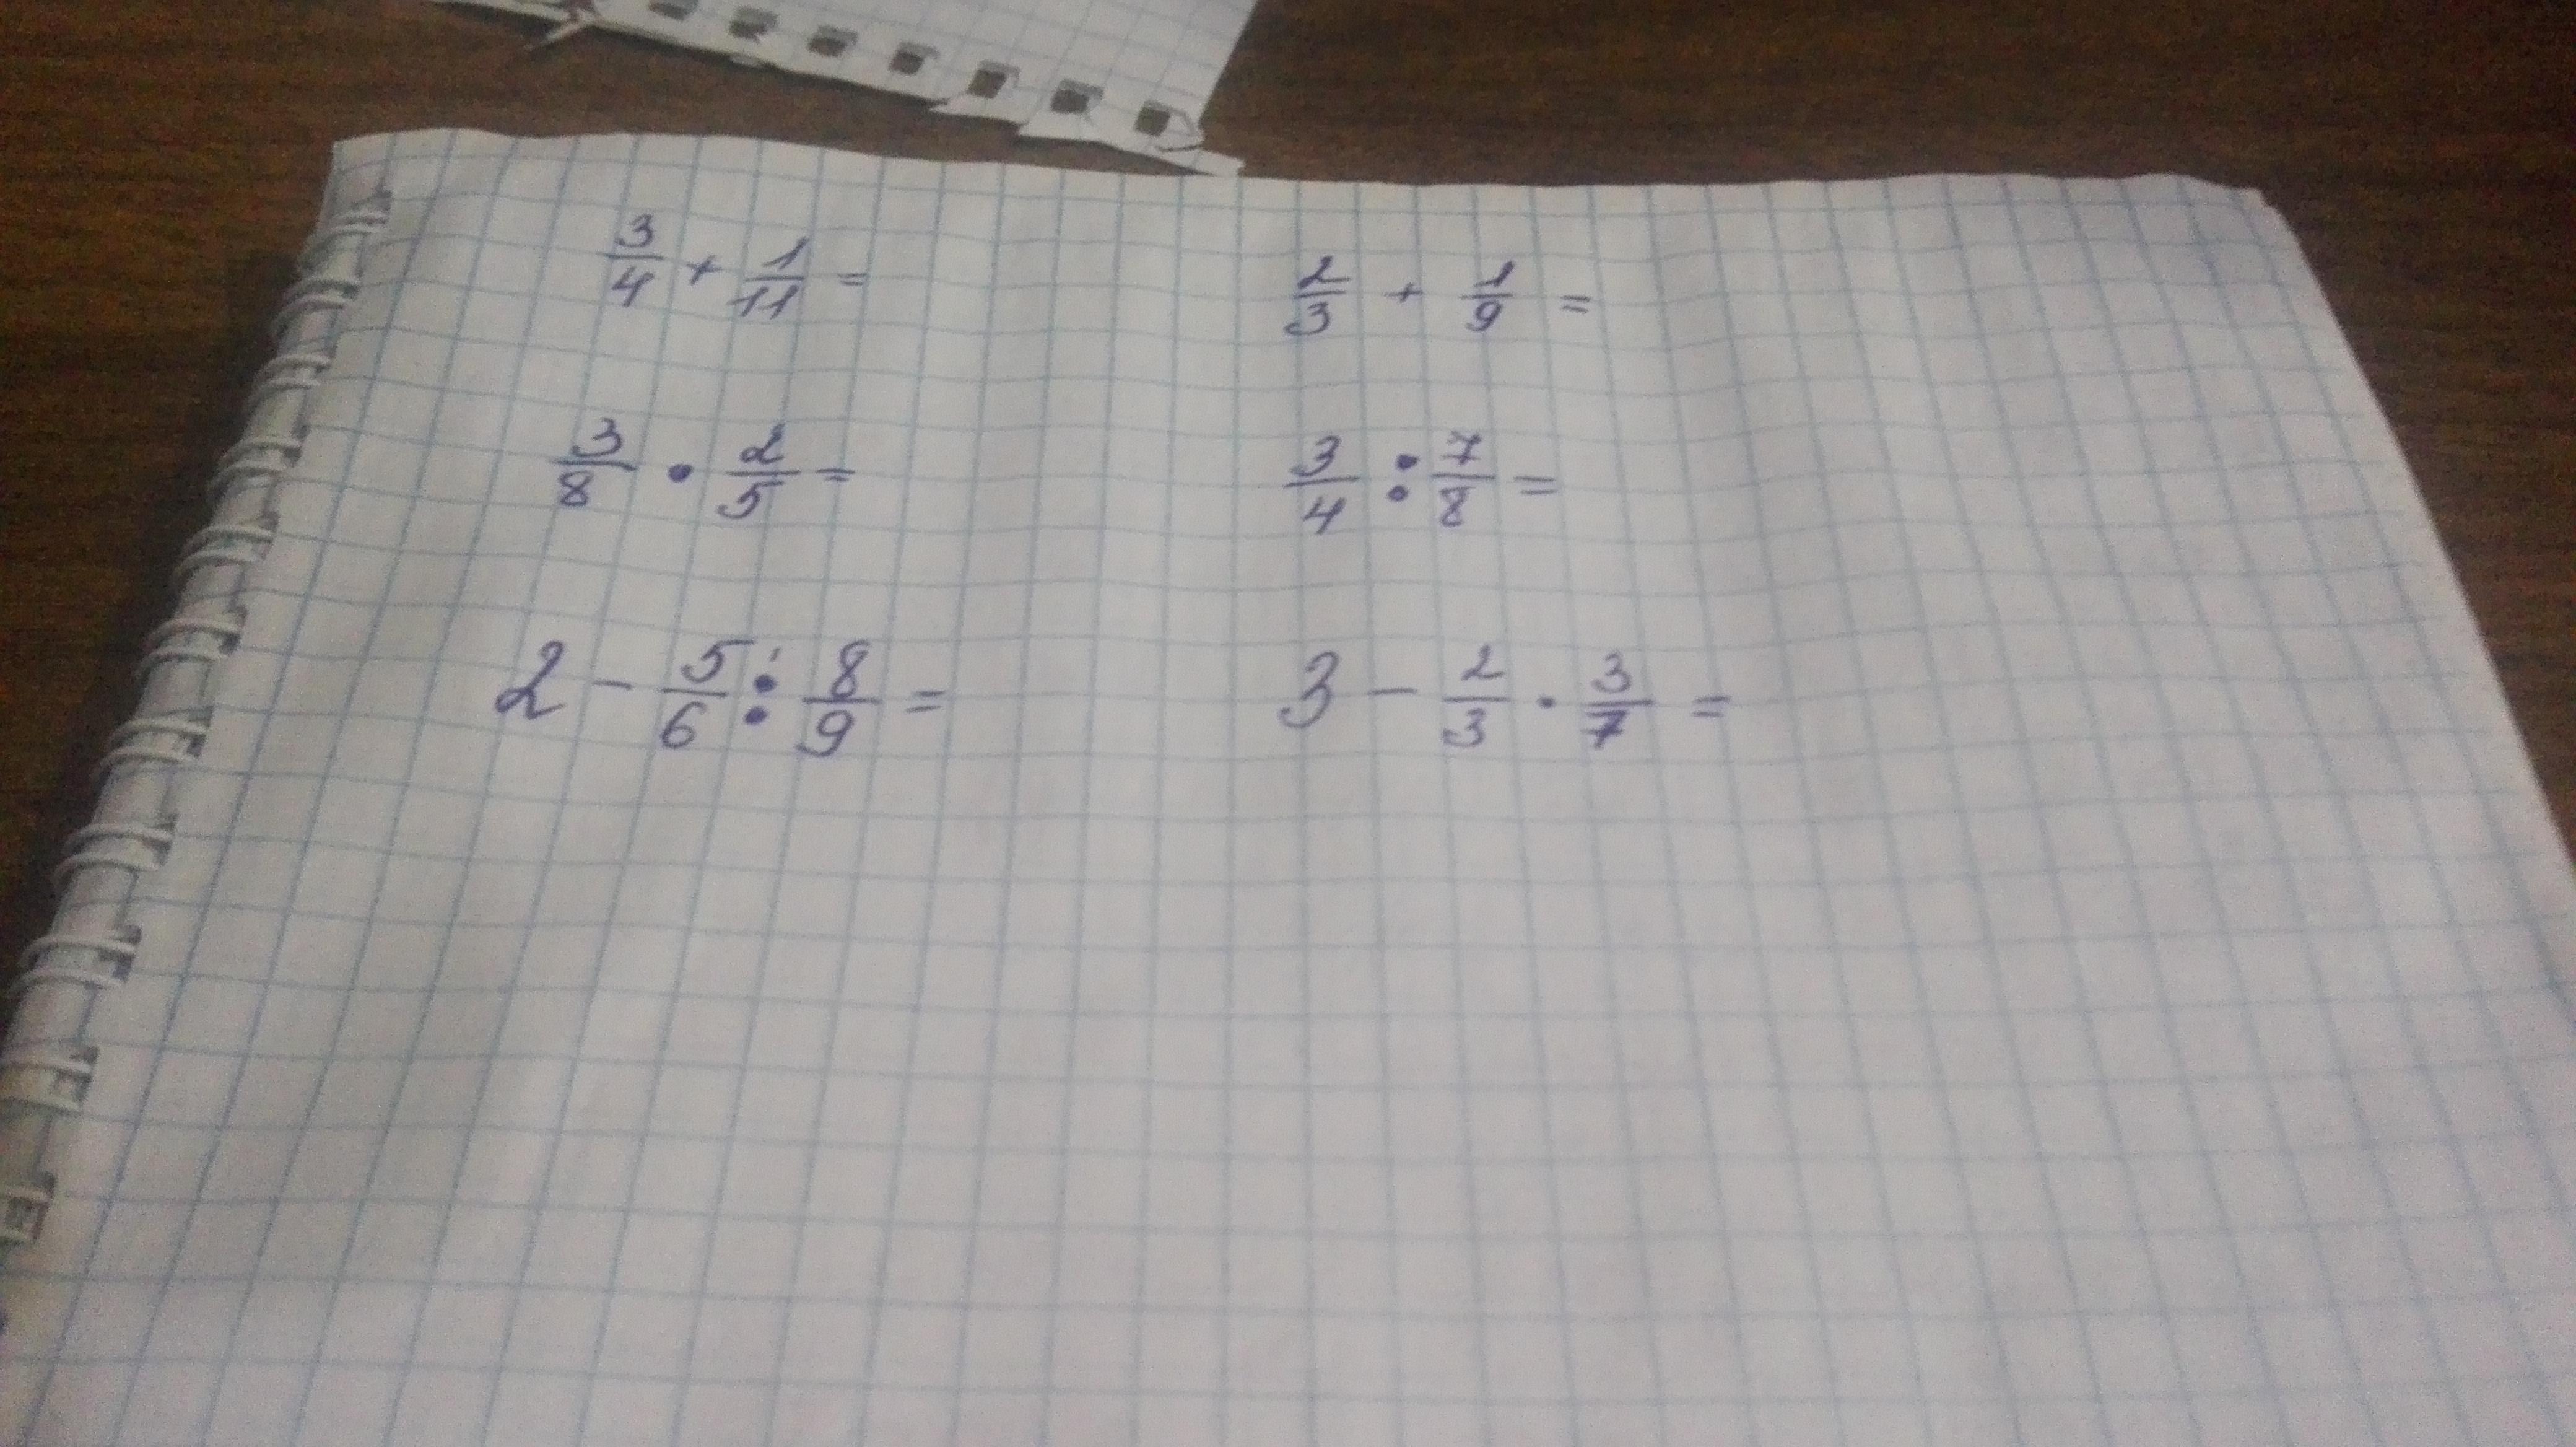 3/4 + 1/11 = 2/3 + 1/9 =
3/8 · 2/5 = 3/4 : 7/8 =
2 - 5/6 : 8/9 = 3 - 2/3 · 3/7 =